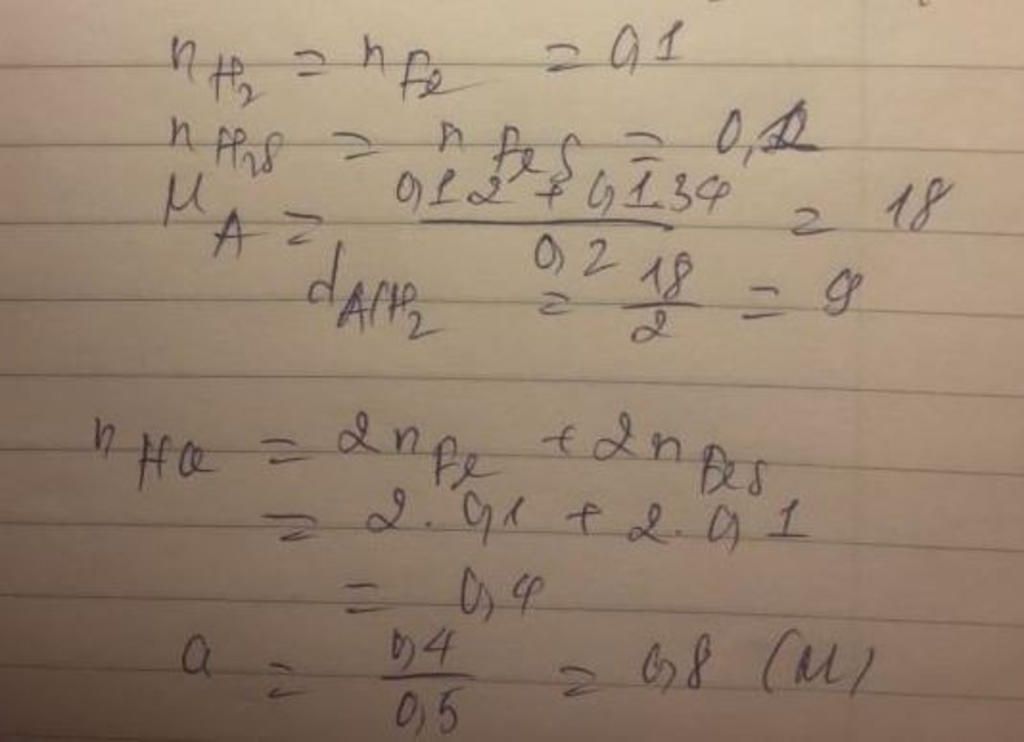 n H₂ = n Fe = 0,1
n H₂S = n FeS = 0,1
M A = (0,1.2 + 0,1.34) / 0,2 = 18
d A/H₂ = 18/2 = 9
n HCl = 2n Fe + 2n FeS
= 2. 0,1 + 2. 0,1
= 0,4
a = 0,4 / 0,5 = 0,8 (M)